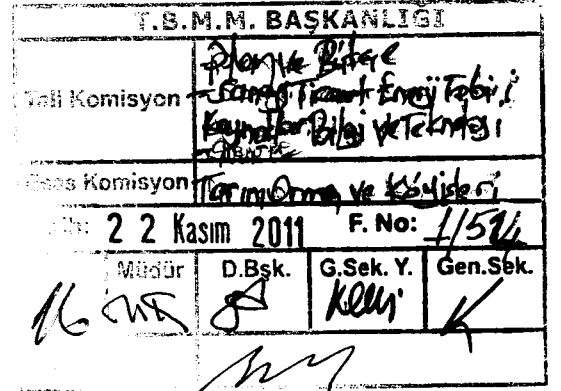 T.B.M.M. BAŞKANLIĞI
Plan ve Bütçe
Tali Komisyon
Sanayi Ticaret Enerji Tabii
Kaynaklar Bilgi ve Teknoloji
Esas Komisyon
Tarım Orman ve Köyişleri
22 Kasım 2011 F. No: 1/514
Müdür D.Bşk. G.Sek. Y. Gen.Sek.